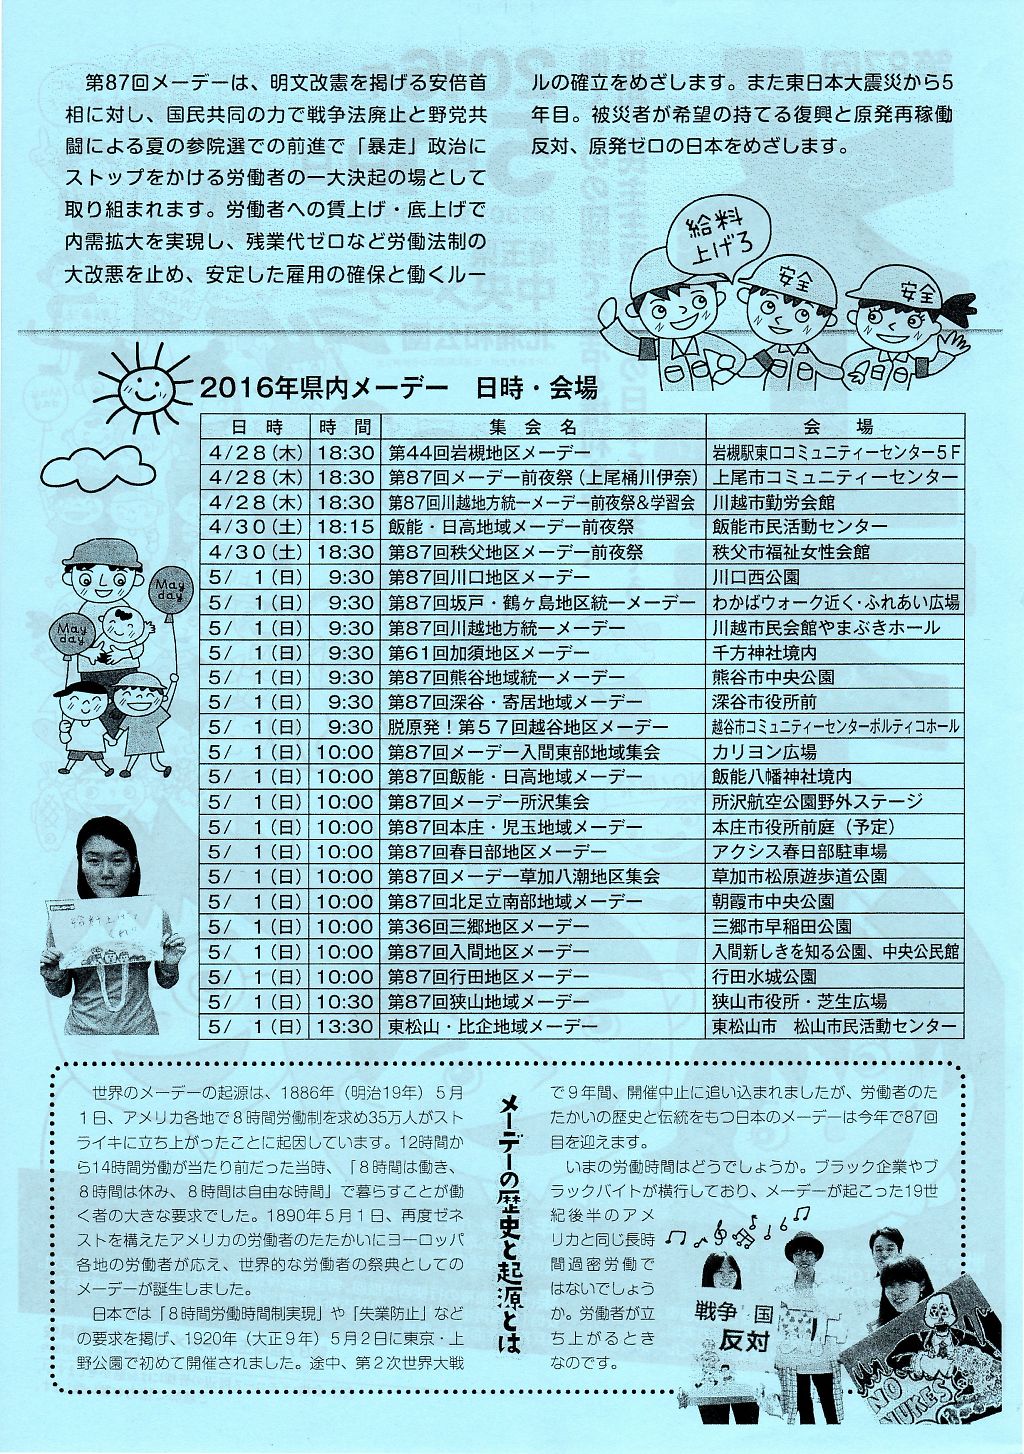 第87回メーデーは、明文改憲を掲げる安倍首
相に対し、国民共同の力で戦争法廃止と野党共
闘による夏の参院選での前進で「暴走」政治に
ストップをかける労働者の一大決起の場として
取り組まれます。労働者への賃上げ・底上げで
内需拡大を実現し、残業代ゼロなど労働法制の
大改悪を止め、安定した雇用の確保と働くルー
ルの確立をめざします。また東日本大震災から5
年目。被災者が希望の持てる復興と原発再稼働
反対、原発ゼロの日本をめざします。
給料
上げろ
安全
安全
2016年県内メーデー 日時・会場
日 時 時 間 集 会 名 会 場
4/28(木) 18:30 第44回岩槻地区メーデー 岩槻駅東口コミュニティーセンター5F
4/28(木) 18:30 第87回メーデー前夜祭(上尾桶川伊奈) 上尾市コミュニティーセンター
4/28(木) 18:30 第87回川越地方統一メーデー前夜祭&学習会 川越市勤労会館
4/30(土) 18:15 飯能・日高地域メーデー前夜祭 飯能市民活動センター
4/30(土) 18:30 第87回秩父地区メーデー前夜祭 秩父市福祉女性会館
5/ 1(日) 9:30 第87回川口地区メーデー 川口西公園
5/ 1(日) 9:30 第87回坂戸・鶴ヶ島地区統一メーデー わかばウォーク近く・ふれあい広場
5/ 1(日) 9:30 第87回川越地方統一メーデー 川越市民会館やまぶきホール
5/ 1(日) 9:30 第61回加須地区メーデー 千方神社境内
5/ 1(日) 9:30 第87回熊谷地域統一メーデー 熊谷市中央公園
5/ 1(日) 9:30 第87回深谷・寄居地域メーデー 深谷市役所前
5/ 1(日) 9:30 脱原発!第57回越谷地区メーデー 越谷市コミュニティーセンターポルティコホール
5/ 1(日) 10:00 第87回メーデー入間東部地域集会 カリヨン広場
5/ 1(日) 10:00 第87回飯能・日高地域メーデー 飯能八幡神社境内
5/ 1(日) 10:00 第87回メーデー所沢集会 所沢航空公園野外ステージ
5/ 1(日) 10:00 第87回本庄・児玉地域メーデー 本庄市役所前庭(予定)
5/ 1(日) 10:00 第87回春日部地区メーデー アクシス春日部駐車場
5/ 1(日) 10:00 第87回メーデー草加八潮地区集会 草加市松原遊歩道公園
5/ 1(日) 10:00 第87回北足立南部地域メーデー 朝霞市中央公園
5/ 1(日) 10:00 第36回三郷地区メーデー 三郷市早稲田公園
5/ 1(日) 10:00 第87回入間地区メーデー 入間新しきを知る公園、中央公民館
5/ 1(日) 10:00 第87回行田地区メーデー 行田水城公園
5/ 1(日) 10:30 第87回狭山地域メーデー 狭山市役所・芝生広場
5/ 1(日) 13:30 東松山・比企地域メーデー 東松山市 松山市民活動センター
May
day
May
day
メーデーの歴史と起源とは
世界のメーデーの起源は、1886年(明治19年)5月
1日、アメリカ各地で8時間労働制を求め35万人がスト
ライキに立ち上がったことに起因しています。12時間か
ら14時間労働が当たり前だった当時、「8時間は働き、
8時間は休み、8時間は自由な時間」で暮らすことが働
く者の大きな要求でした。1890年5月1日、再度ゼネ
ストを構えたアメリカの労働者のたたかいにヨーロッパ
各地の労働者が応え、世界的な労働者の祭典としての
メーデーが誕生しました。
日本では「8時間労働時間制実現」や「失業防止」など
の要求を掲げ、1920年(大正9年)5月2日に東京・上
野公園で初めて開催されました。途中、第2次世界大戦
で9年間、開催中止に追い込まれましたが、労働者のた
たかいの歴史と伝統をもつ日本のメーデーは今年で87回
目を迎えます。
いまの労働時間はどうでしょうか。ブラック企業やブ
ラックバイトが横行しており、メーデーが起こった19世
紀後半のアメ
リカと同じ長時
間過密労働で
はないでしょう
か。労働者が立
ち上がるとき
なのです。
戦争 国
反対
NO
NUKES